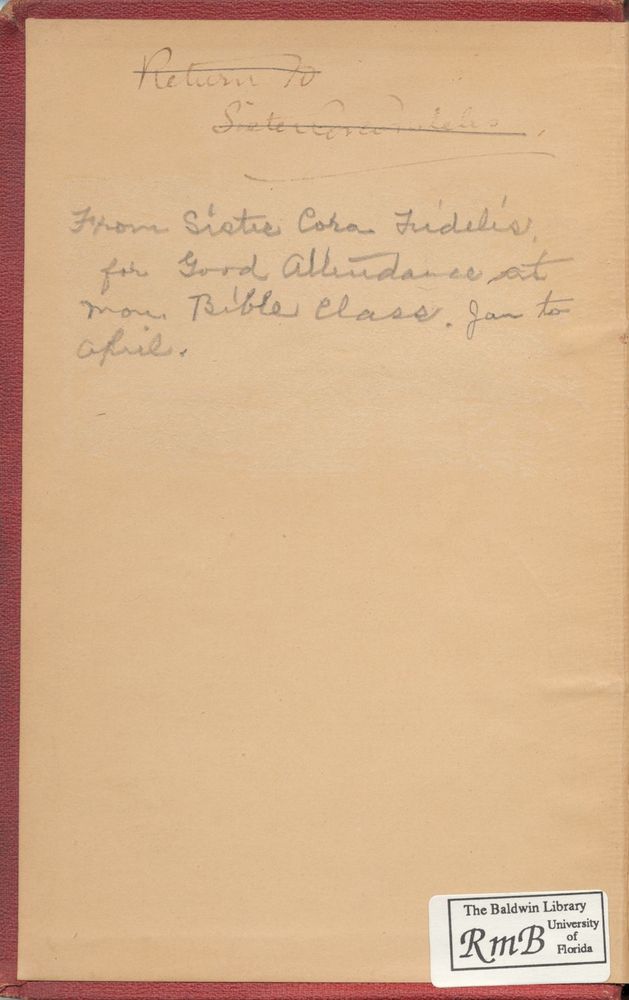 Return To
Sister Cora Fidelis
From Sister Cora Fidelis,
for Good Attendance at
Mon. Bible Class. Jan to
April.
The Baldwin Library
RmB University
of
Florida